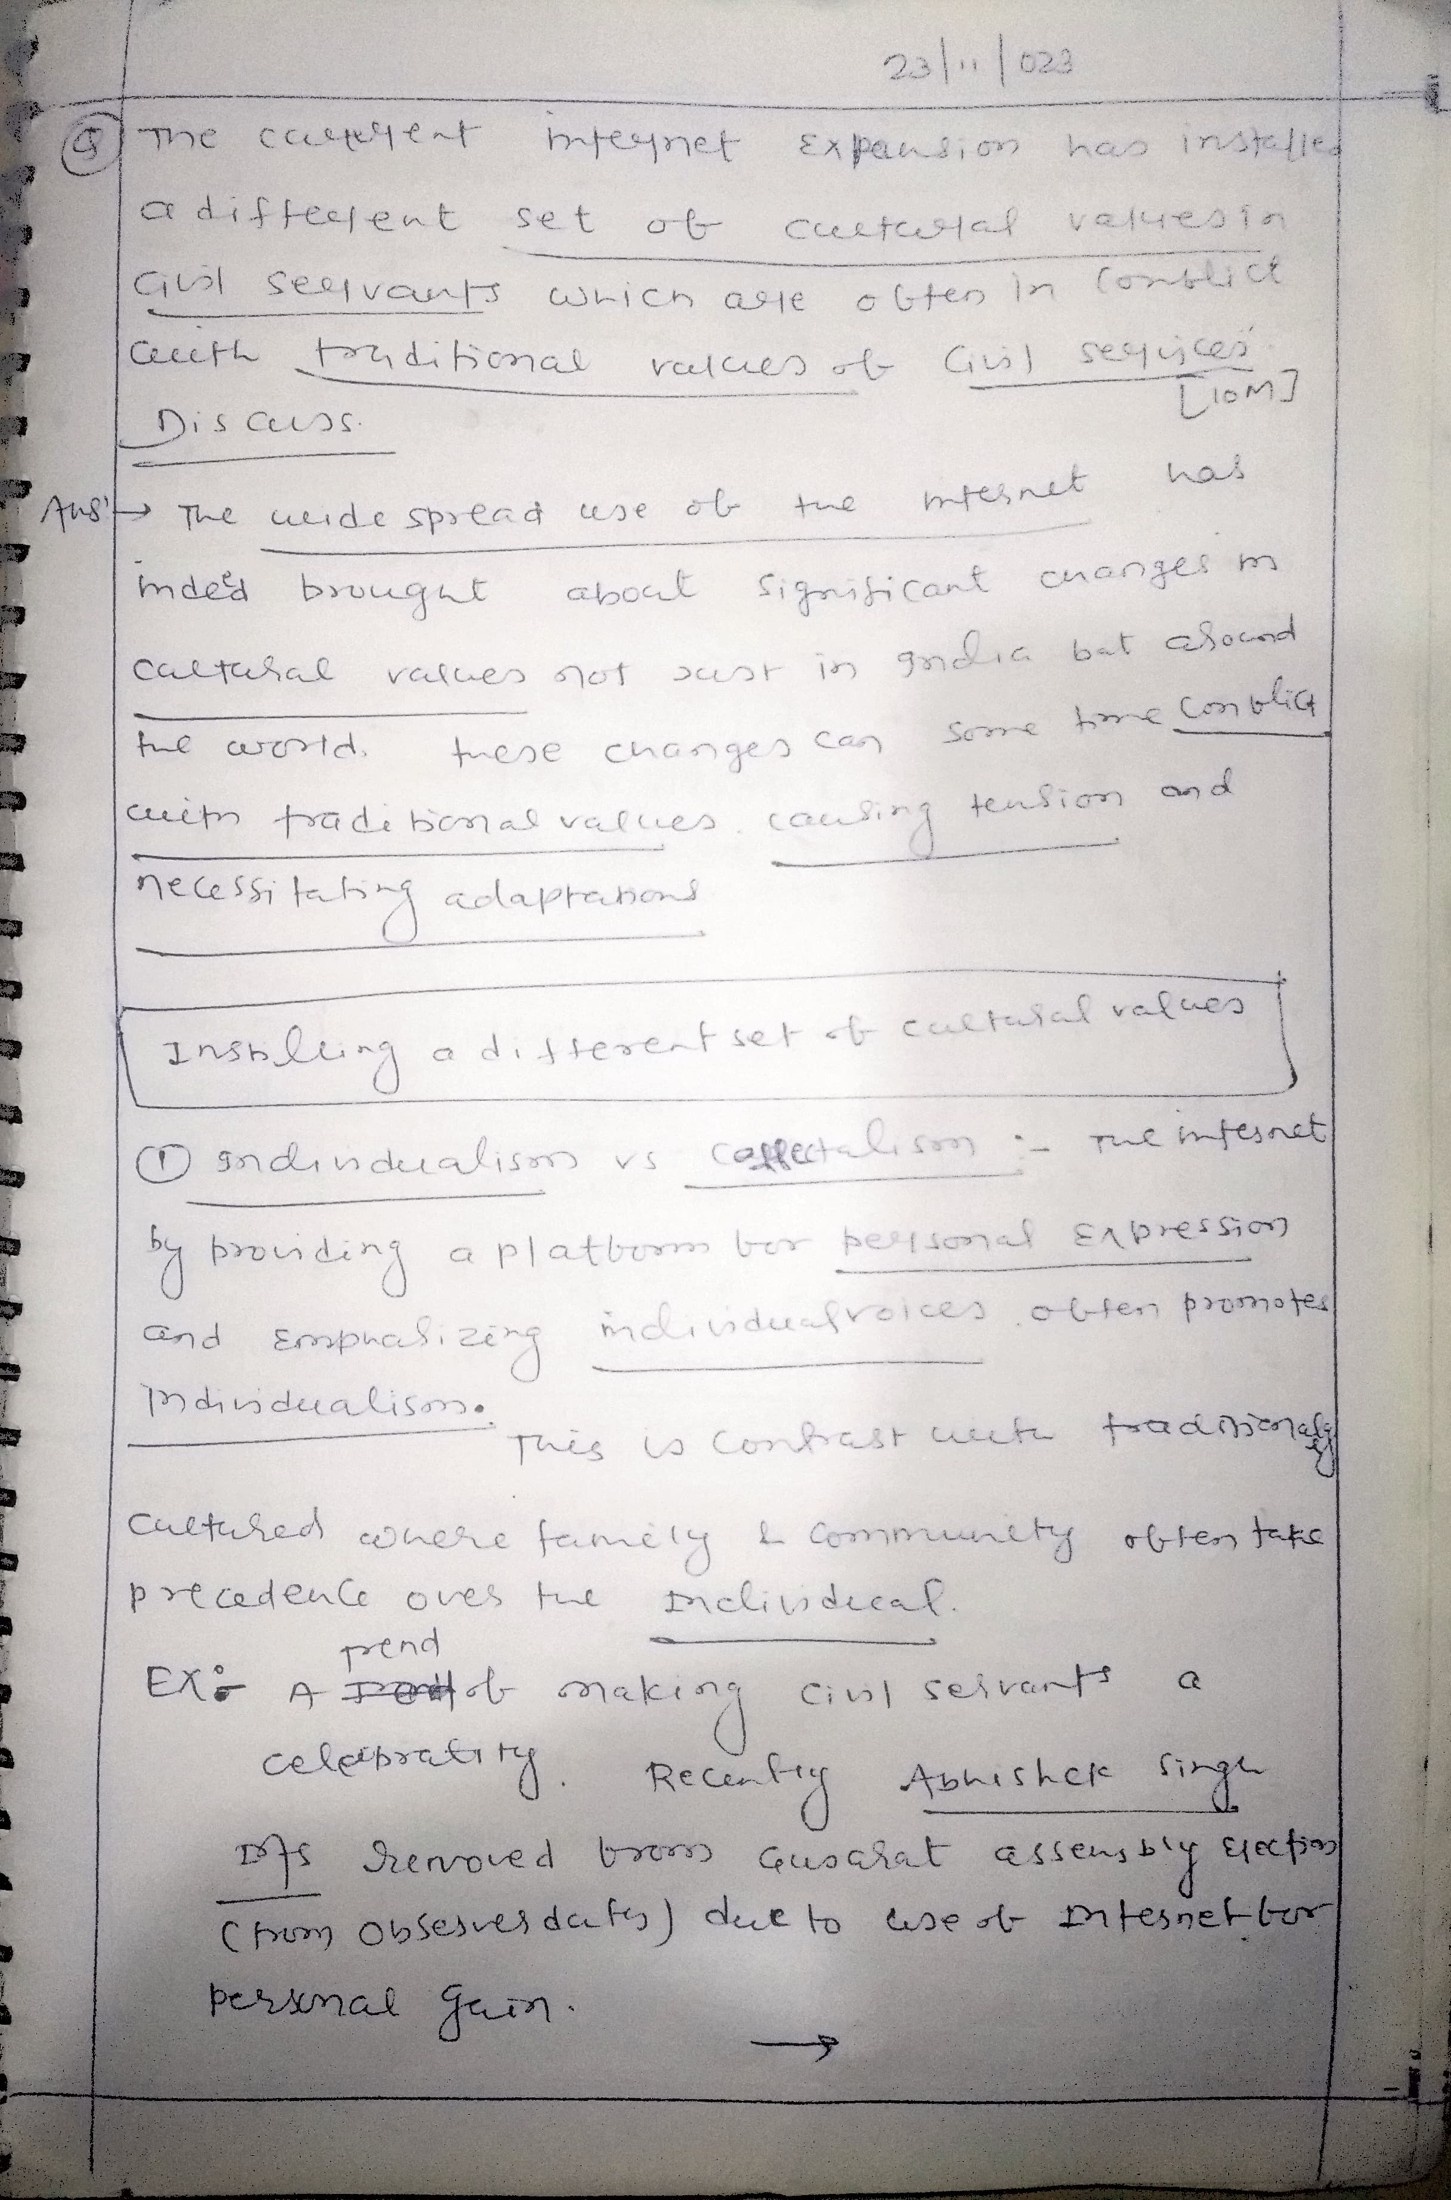 23/11/023
Q The current internet Expansion has installed
a different set of cultural values in
Civil servants which are often in Conflict
with traditional values of Civil services.
[10M]
Discuss.
Ans: → The wide spread use of the internet has
indeed brought about significant changes in
cultural values not just in India but around
the world. these changes can some time conflict
with traditional values. causing tension and
necessitating adaptations
Instilling a different set of cultural values
① Individualism vs :- The internet
by providing a platform for personal Expression
and Emphasizing individual voices often promotes
Individualism.
This is contrast with traditionaly
Cultured where family & Community often take
precedence over the Individual.
Trend
EX:- A of making civil servants a
. Recently Abhishek Singh
IAS removed from Gujarat assembly Election
(from Observer duty) due to use of Internet for
personal gain.
→